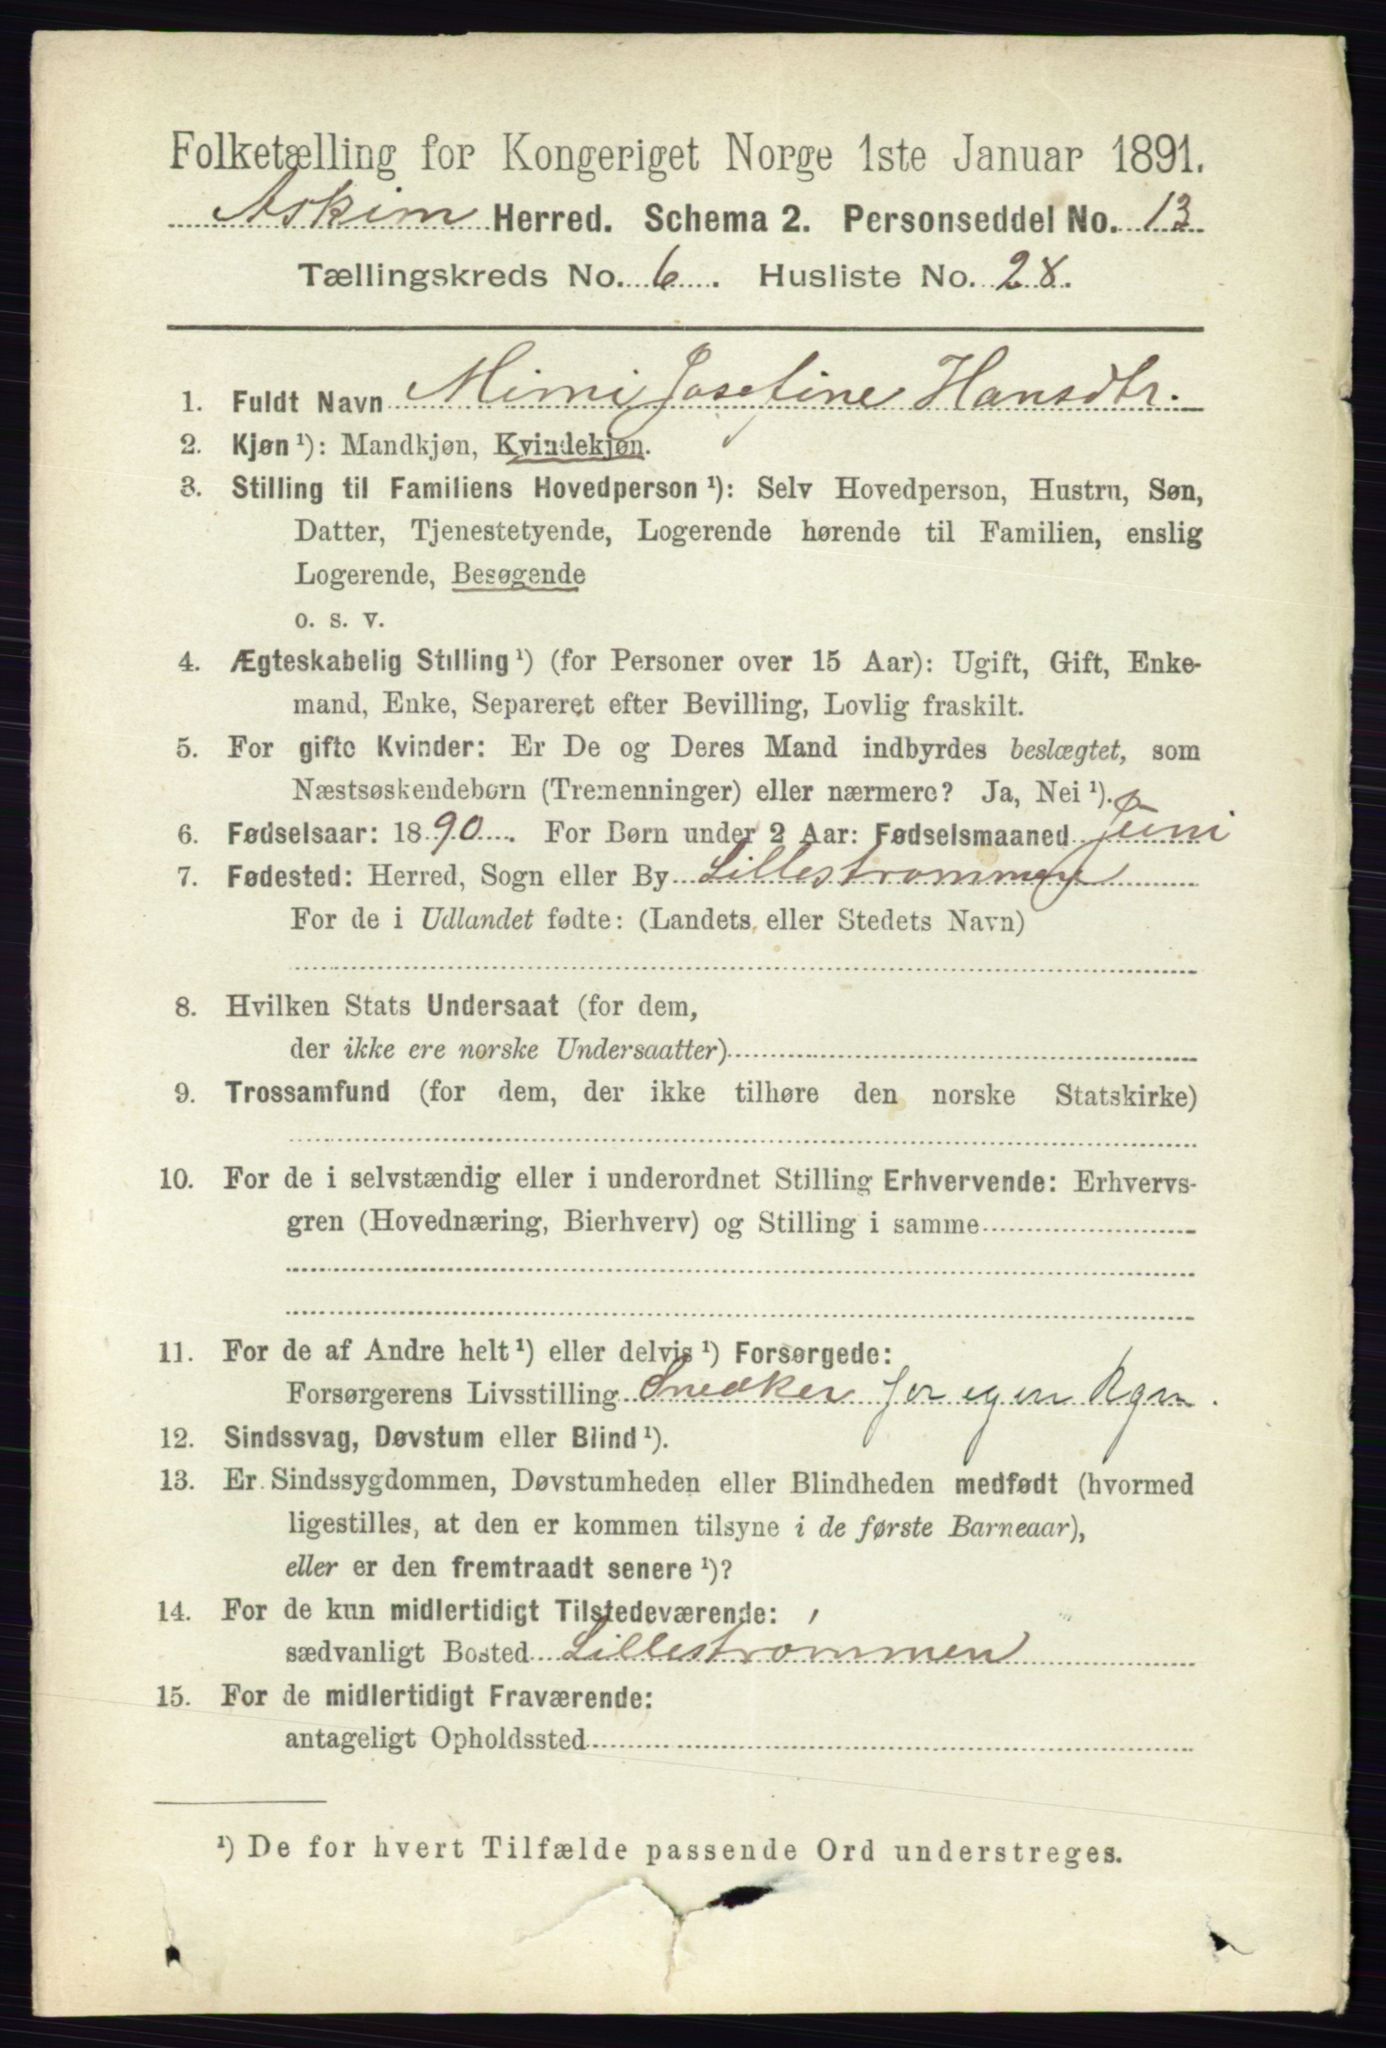 Folketælling for Kongeriget Norge 1ste Januar 1891.
Askim Herred. Schema 2. Personseddel No. 13
Tællingskreds No. 6. Husliste No. 28.
1. Fuldt Navn Mimi Josefine Hansdtr.
2. Kjøn ¹): Mandkjøn, Kvindekjøn.
3. Stilling til Familiens Hovedperson ¹): Selv Hovedperson, Hustru, Søn,
Datter, Tjenestetyende, Logerende hørende til Familien, enslig
Logerende, Besøgende
o. s. v.
4. Ægteskabelig Stilling ¹) (for Personer over 15 Aar): Ugift, Gift, Enke-
mand, Enke, Separeret efter Bevilling, Lovlig fraskilt.
5. For gifte Kvinder: Er De og Deres Mand indbyrdes beslægtet, som
Næstsøskendebørn (Tremenninger) eller nærmere? Ja, Nei ¹).
6. Fødselsaar: 1890. For Børn under 2 Aar: Fødselsmaaned Juni
7. Fødested: Herred, Sogn eller By Lillestrømmen
For de i Udlandet fødte: (Landets eller Stedets Navn)
8. Hvilken Stats Undersaat (for dem,
der ikke ere norske Undersaatter)
9. Trossamfund (for dem, der ikke tilhøre den norske Statskirke)
10. For de i selvstændig eller i underordnet Stilling Erhvervende: Erhvervs-
gren (Hovednæring, Bierhverv) og Stilling i samme
11. For de af Andre helt ¹) eller delvis ¹) Forsørgede:
Forsørgerens Livsstilling Snedker for egen Rgn.
12. Sindssvag, Døvstum eller Blind ¹).
13. Er Sindssygdommen, Døvstumheden eller Blindheden medfødt (hvormed
ligestilles, at den er kommen tilsyne i de første Barneaar),
eller er den fremtraadt senere ¹)?
14. For de kun midlertidigt Tilstedeværende:
sædvanligt Bosted Lillestrømmen
15. For de midlertidigt Fraværende:
antageligt Opholdssted
¹) De for hvert Tilfælde passende Ord understreges.